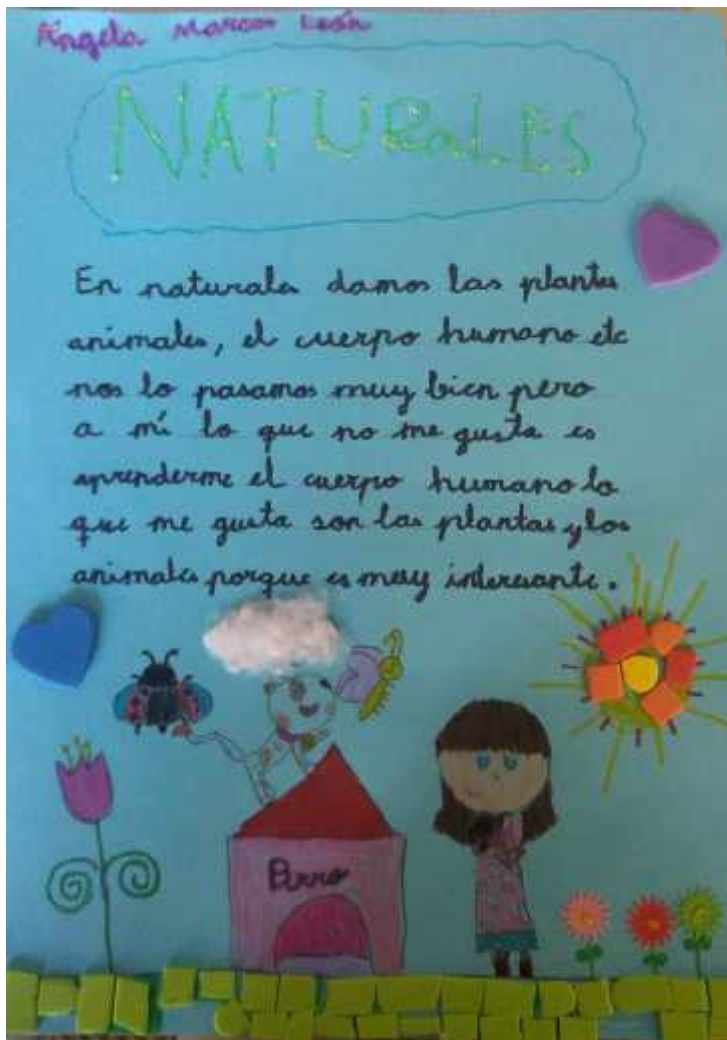 Ángela Marcos León
NATURALES
En naturales damos las plantas
animales, el cuerpo humano etc
nos lo pasamos muy bien pero
a mí lo que no me gusta es
aprenderme el cuerpo humano lo
que me gusta son las plantas y los
animales porque es muy interesante.
Perro